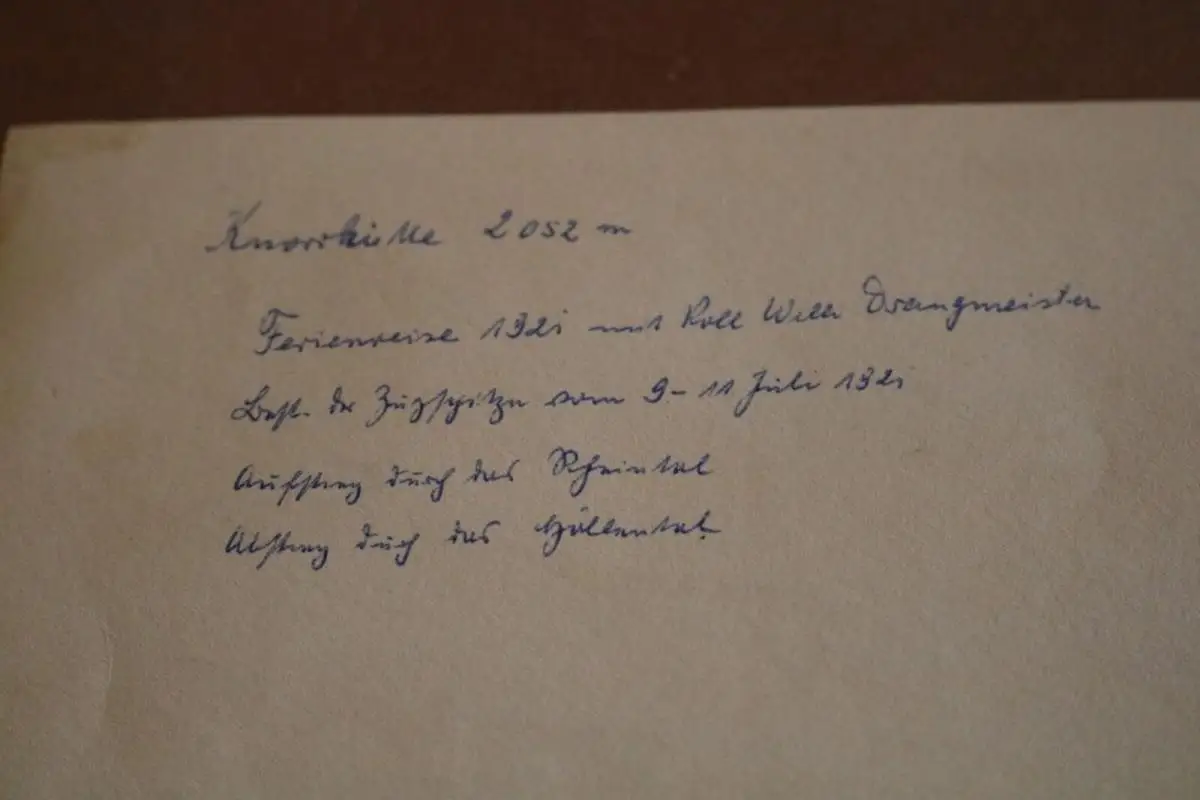 Knorrhütte 2052 m
Ferienreise 1921 mit Koll Drangmeister
Best. der Zugspitze vom 9 - 11 Juli 1921
Aufstieg durch das Rheintal
Abstieg durch das Höllental